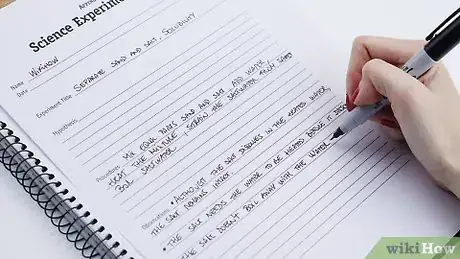 Science Experiment
Name WIKIHOW
Date
Experiment Title SEPARATE SAND AND SALT, SOLUBILITY
Hypothesis
Procedures MIX EQUAL PARTS SAND AND SALT, ADD WATER
HEAT THE MIXTURE, STRAIN THE SALTWATER FROM SAND
BOIL SALTWATER
Observations • ALTHOUGH THE SALT DISSOLVES IN THE HEATED WATER,
THE SALT REMAINS INTACT
• THE SALT NEEDS THE WATER TO BE HEATED BEFORE IT
• THE SALT DOESN'T BOIL AWAY WITH THE WATER
wikiHow